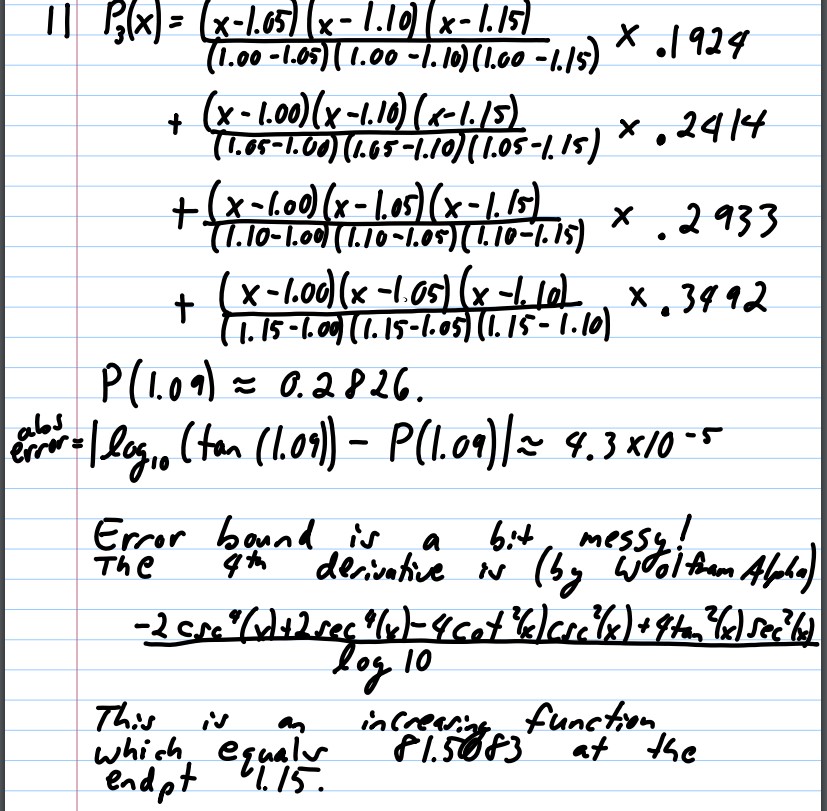 11 P₃(x) = (x-1.05)(x-1.10)(x-1.15) / (1.00-1.05)(1.00-1.10)(1.00-1.15) × .1924
+ (x-1.00)(x-1.10)(x-1.15) / (1.05-1.00)(1.05-1.10)(1.05-1.15) × .2414
+ (x-1.00)(x-1.05)(x-1.15) / (1.10-1.00)(1.10-1.05)(1.10-1.15) × .2933
+ (x-1.00)(x-1.05)(x-1.10) / (1.15-1.00)(1.15-1.05)(1.15-1.10) × .3492
P(1.09) ≈ 0.2826.
abs error = |log₁₀(tan(1.09)) - P(1.09)| ≈ 4.3×10⁻⁵
Error bound is a bit messy!
The 4th derivative is (by Wolfram Alpha)
-2csc⁴(x)+2sec⁴(x)-4cot²(x)csc²(x)+4tan²(x)sec²(x) / log 10
This is an increasing function
which equals 81.5083 at the
endpt 1.15.